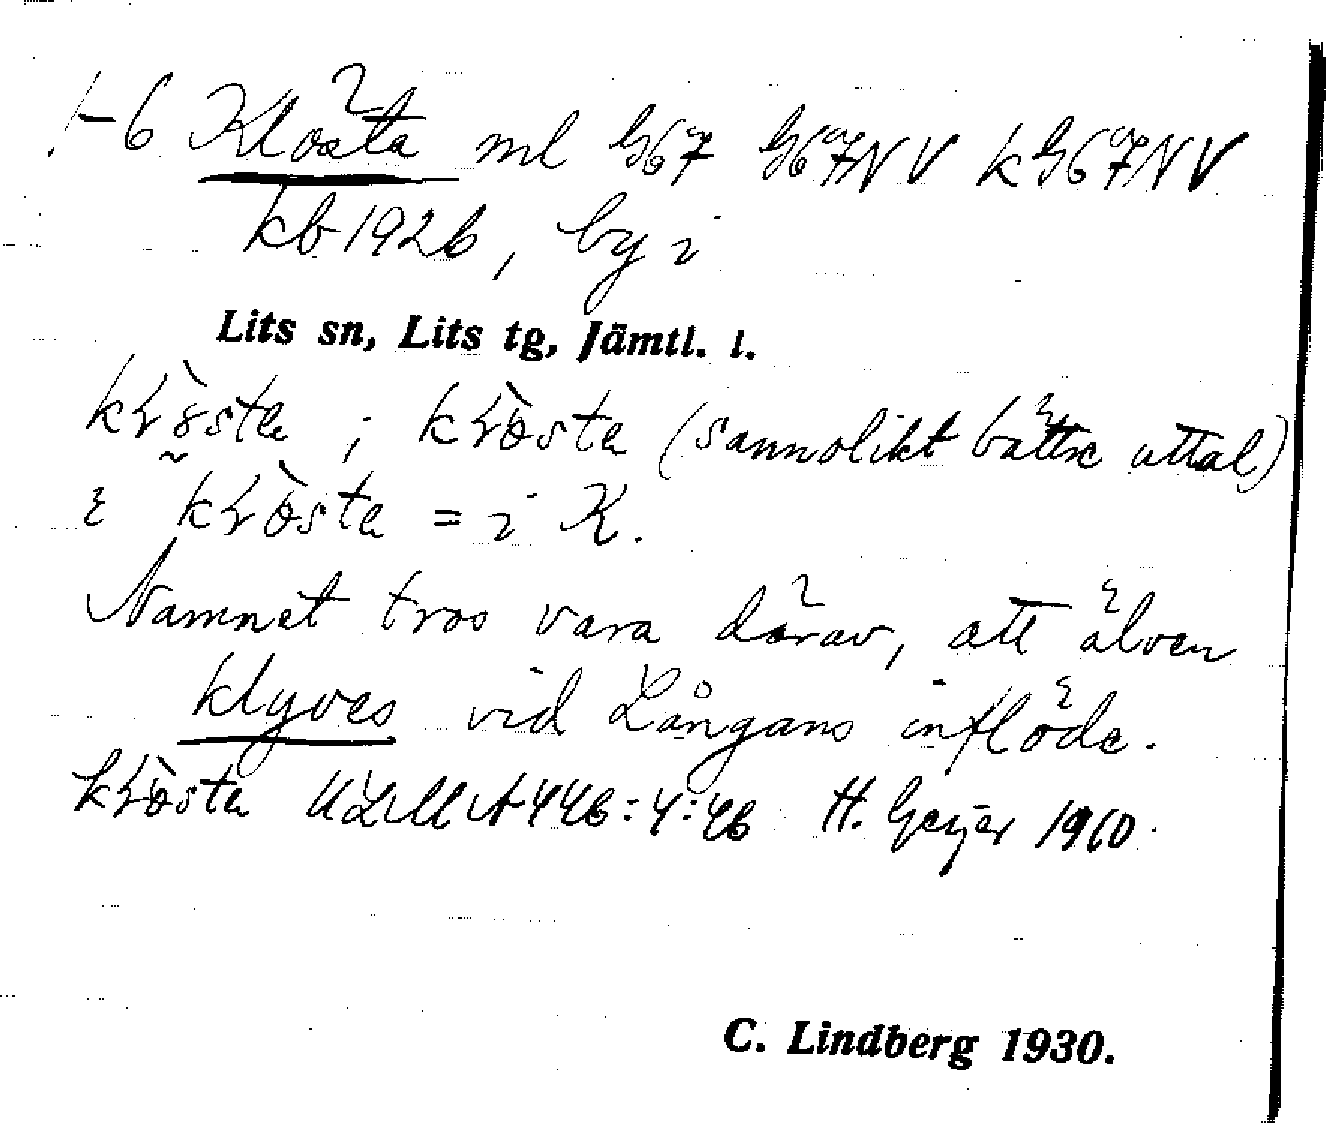 1-6 Klösta ml G67 G67NV k G67NV
kb 1926, by i
Lits sn, Lits tg, Jämtl. l.
; (sannolikt bättre uttal)
= i K.
Namnet tros vara därav, att älven
klyves vid Långans inflöde.
ULMA 446:4:46 H. Geijer 1910.
C. Lindberg 1930.